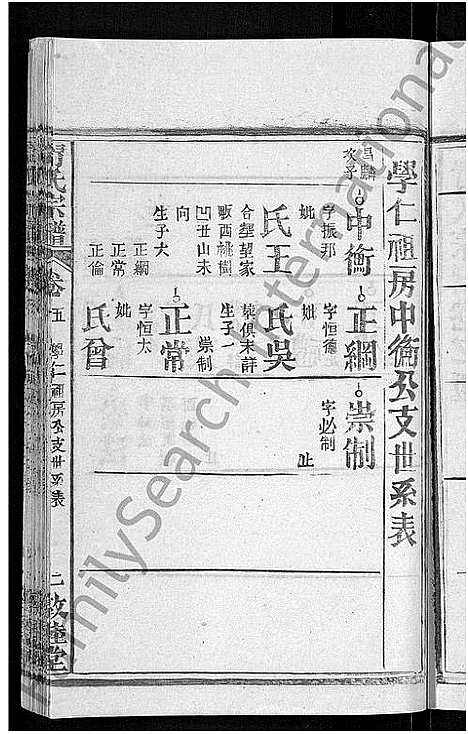 學仁禮房中衡公支世系表
昌麟
次子
中衡
字振邦
妣
氏王
合塟望家
畈西桃樹
凹丑山未
向
生子六
正綱
正常
正倫
正綱
字恒德
妣
氏吳
塟俱未詳
生子一
崇制
正常
字恒太
妣
氏曾
崇制
字必制
止
氏宗譜
卷五
學仁禮房公支世系表
二
敦睦堂
FamilySearch International